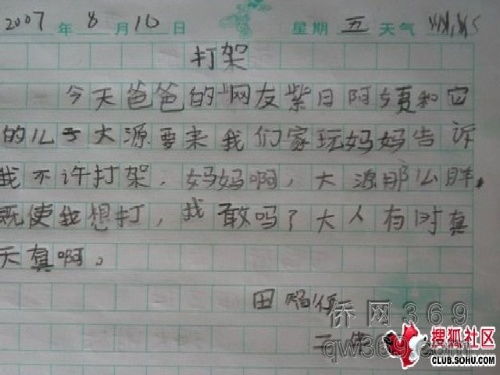 2007年8月10日 星期五 天气
打架
今天爸爸的"网友紫日阿姨和它
的儿子大源要来我们家玩妈妈告诉
我不许打架,妈妈啊,大源那么胖,
既使我想打,我敢吗?大人有时真
天真啊。
田
侨网369
搜狐社区
CLUB.SOHU.COM